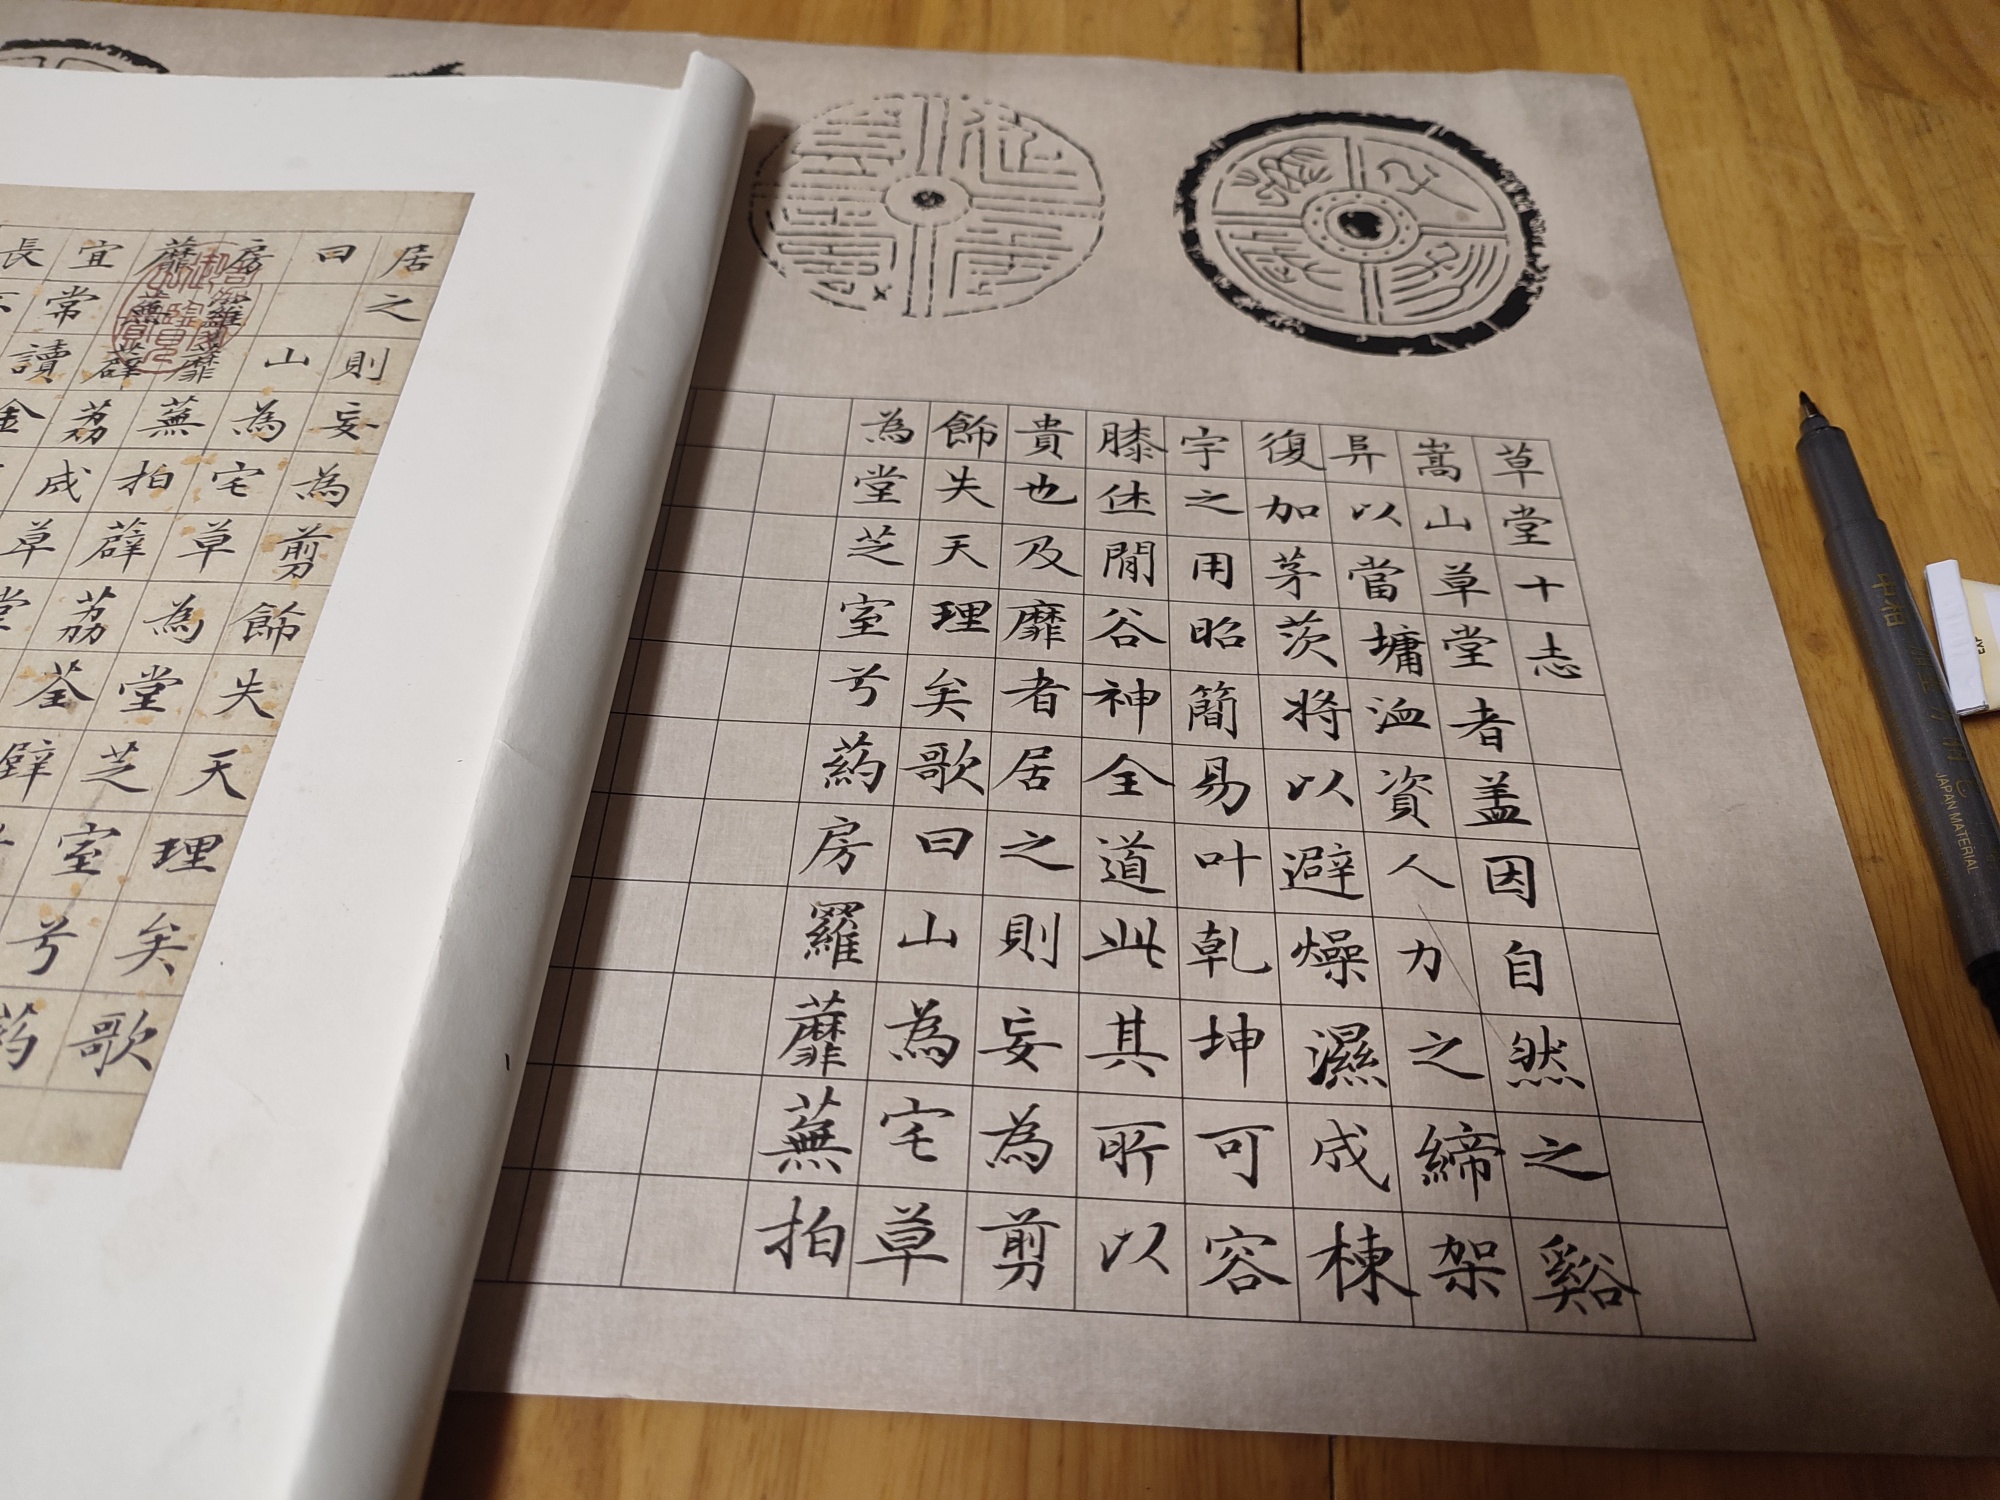 草堂十志
嵩山草堂者盖因自然之谿
阜以當墉洫資人力之締架
復加茅茨將以避燥濕成棟
宇之用昭簡易叶乾坤可容
膝休閒谷神全道此其所以
貴也及靡者居之則妄為剪
飾失天理矣歌曰山為宅草
為堂芝室兮葯房羅蘼蕪拍
居之則妄為剪飾失天理矣歌
曰
房山為宅草為堂芝室兮葯
蘼羅蘼蕪拍薜荔荃
宜常讀金
JAPAN MATERIAL